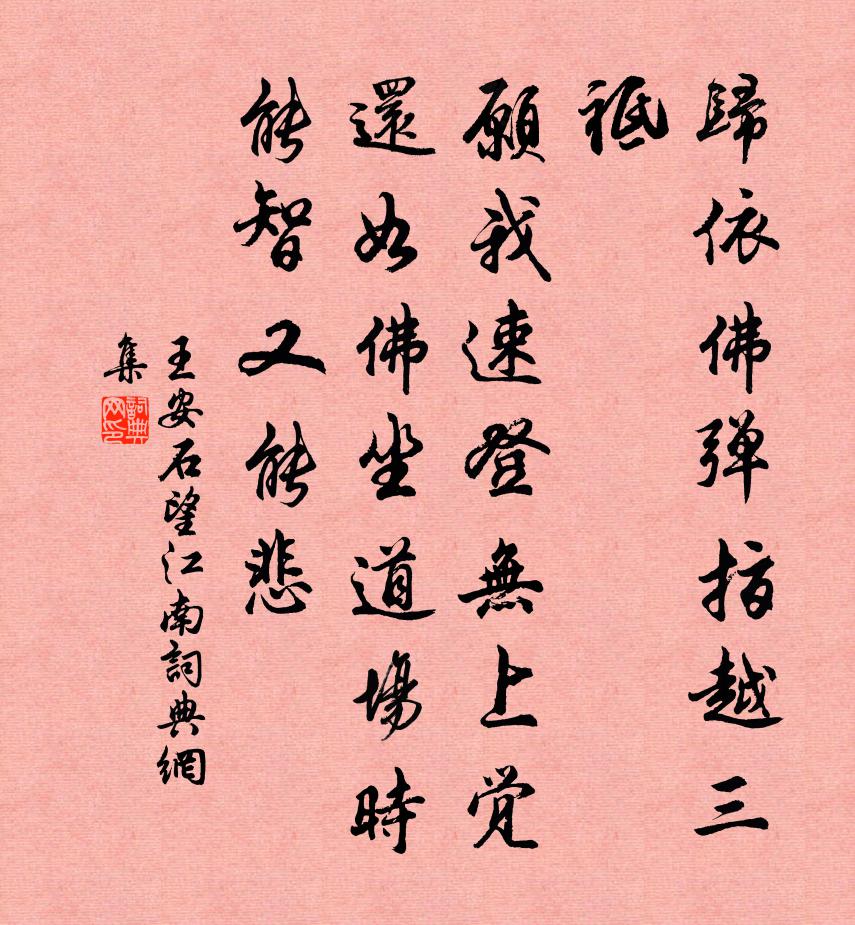 歸依佛弹指越三
祗
願我速登無上觉
還如佛坐道場時
能智又能悲
王安石望江南詞典網
集
詞典網印